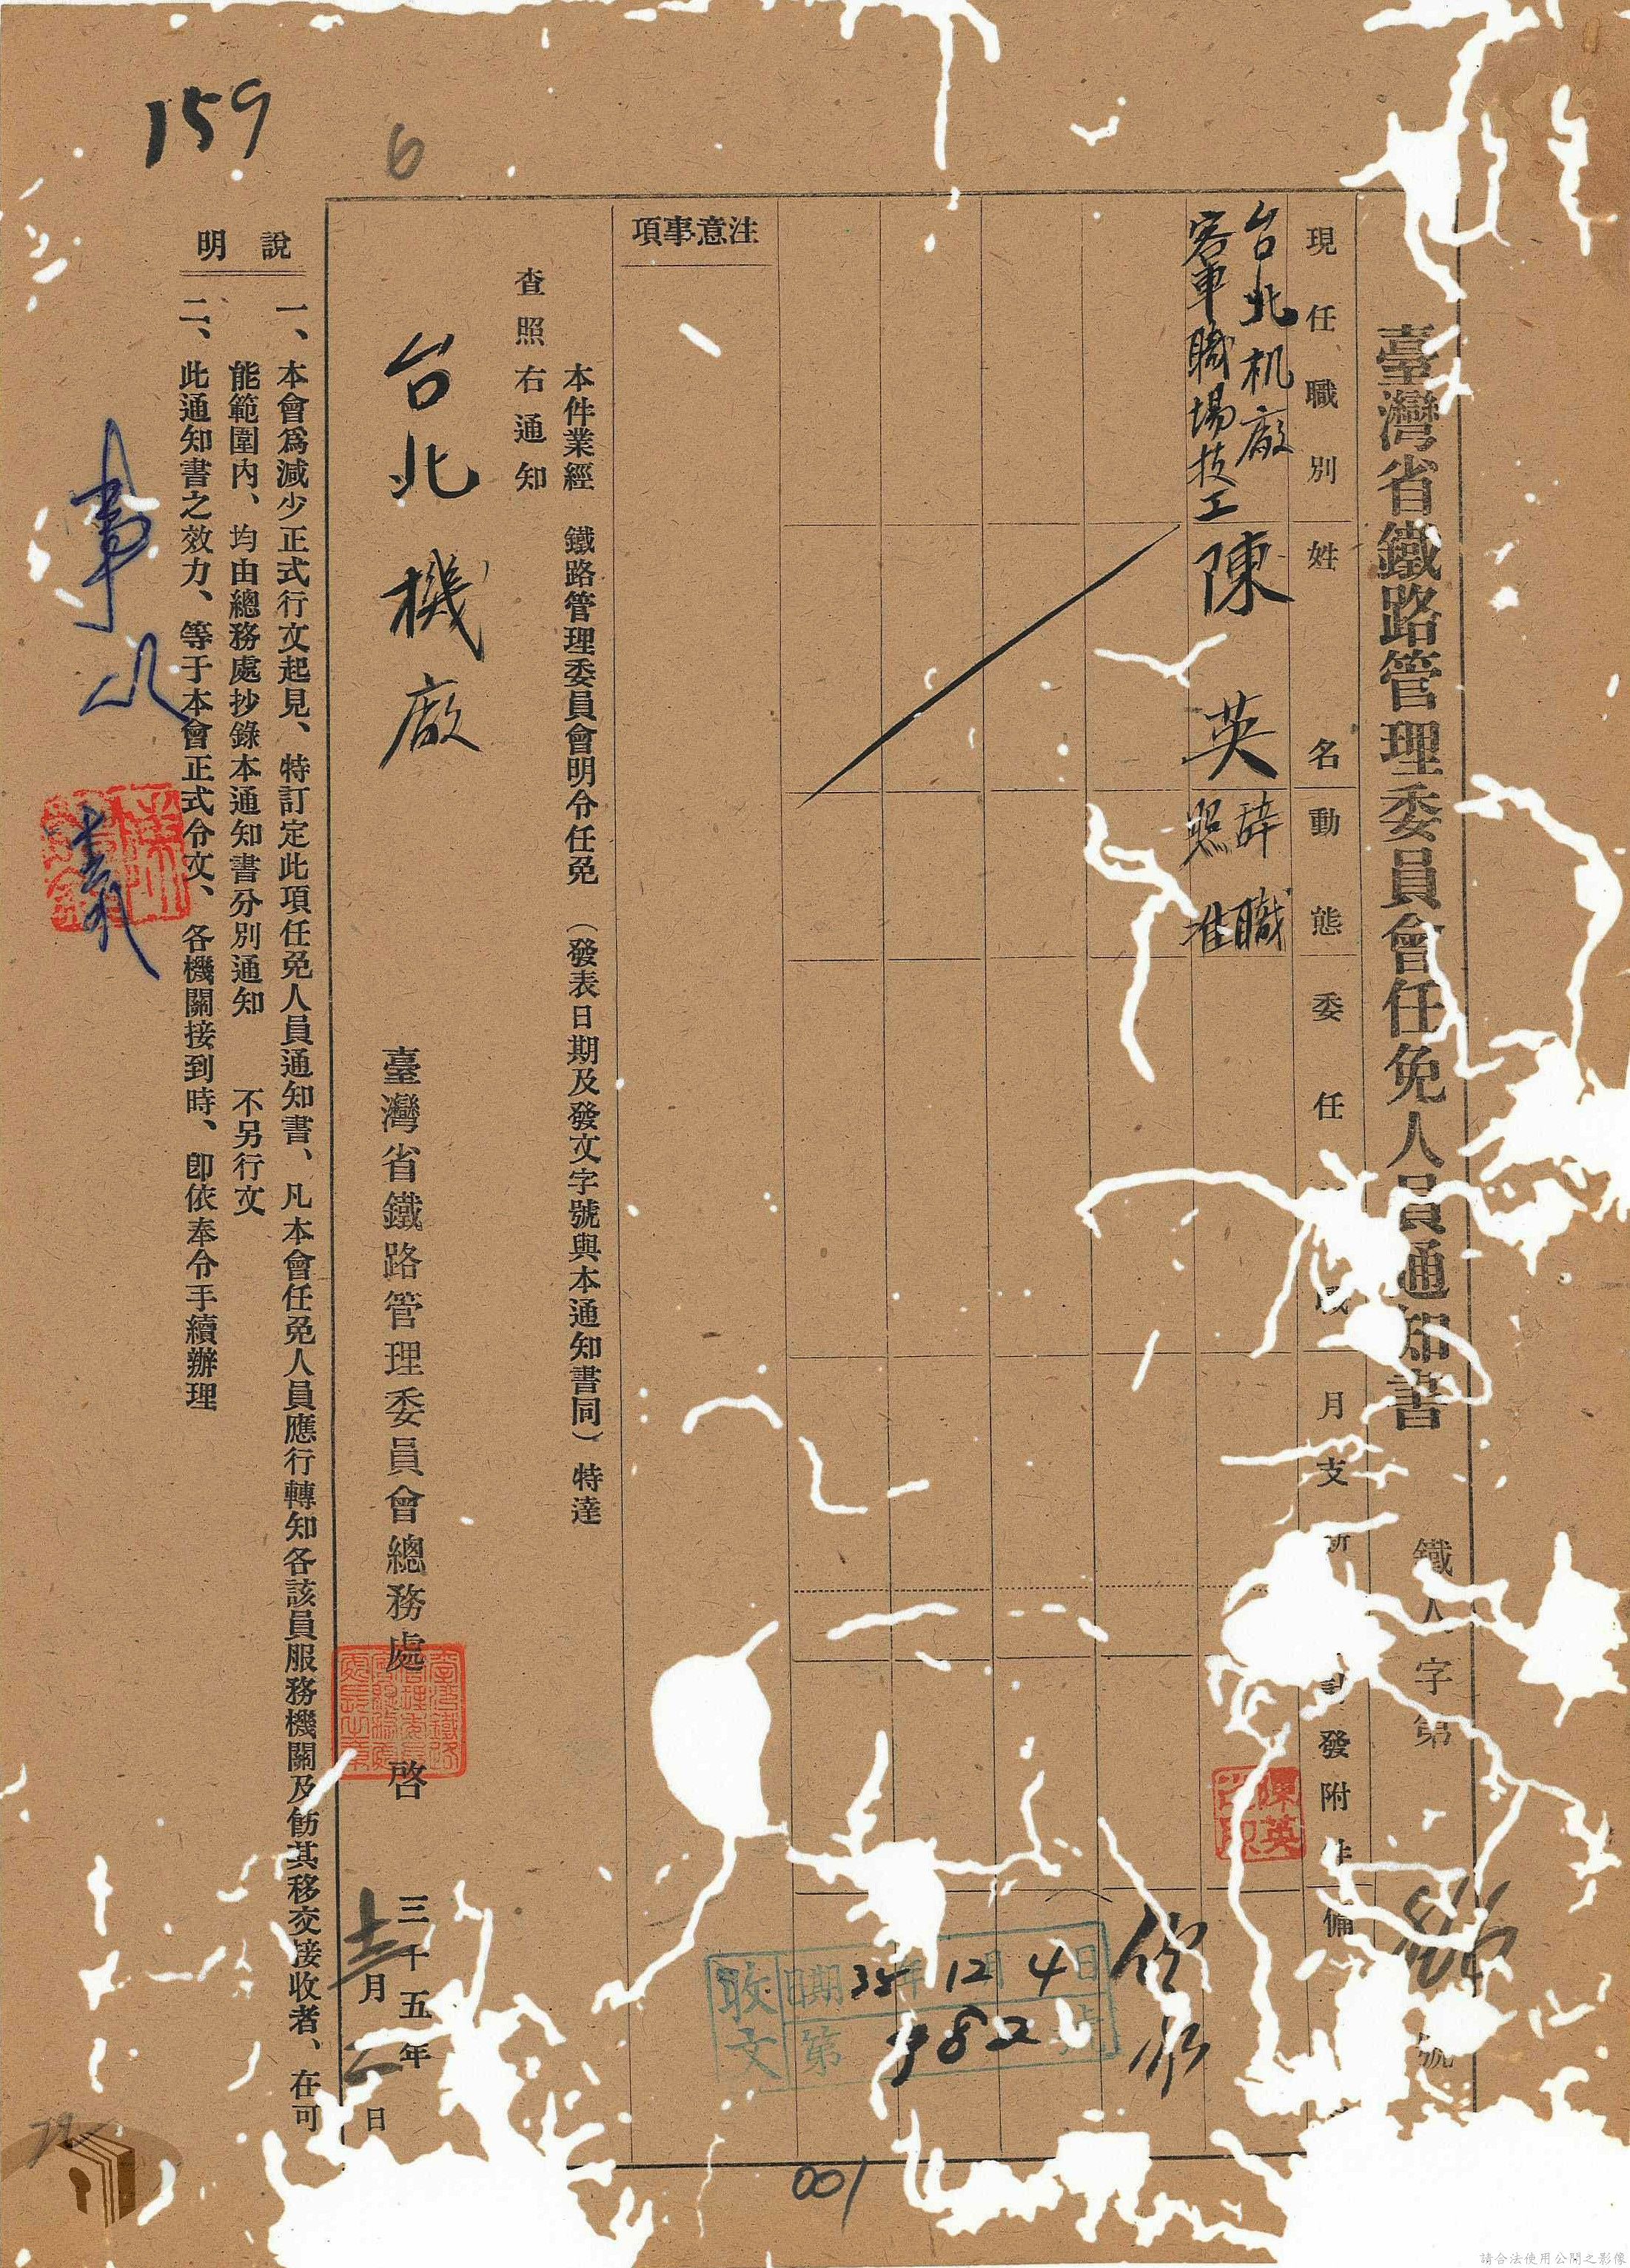 159
6
臺灣省鐵路管理委員會任免人員通知書
鐵人字第
號
現任職別
姓名
動態
委任
月支
發
附件
備
台北机廠
客車職場技工
陳英
辭職
照准
陳英
注意事項
本件業經 鐵路管理委員會明令任免 (發表日期及發文字號與本通知書同) 特達
查照右通知
台北機廠
臺灣省鐵路管理委員會總務處 啓
三十五年
月
日
說明
一、本會爲減少正式行文起見、特訂定此項任免人員通知書、凡本會任免人員應行轉知各該員服務機關及飭其移交接收者、在可
能範圍內、均由總務處抄錄本通知書分別通知 不另行文
二、此通知書之效力、等于本會正式令文、各機關接到時、卽依奉令手續辦理
收文
日期 35年12月4日
第 982 號
001
72
請合法使用公開之影像